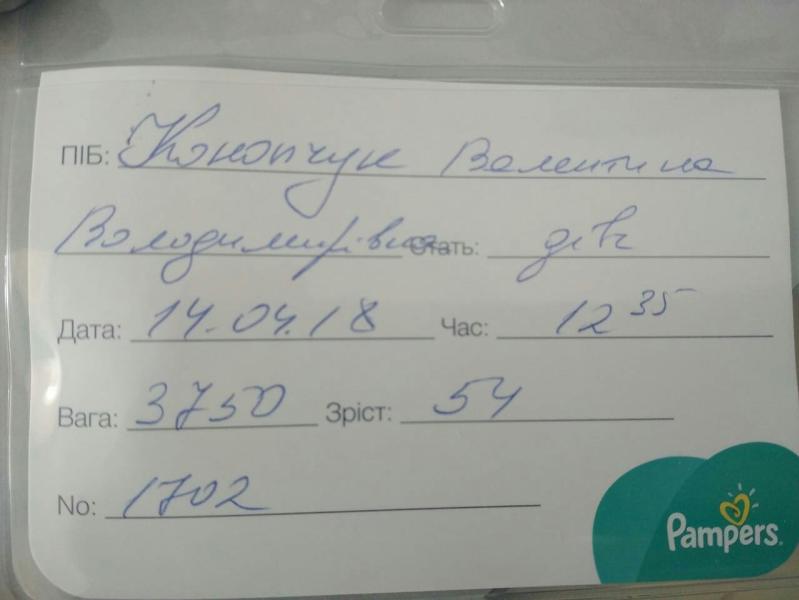 ПІБ: Конопчук Валентина
Володимирівна Стать: дівч
Дата: 14.04.18 Час: 12 35
Вага: 3750 Зріст: 54
No: 1702
Pampers.